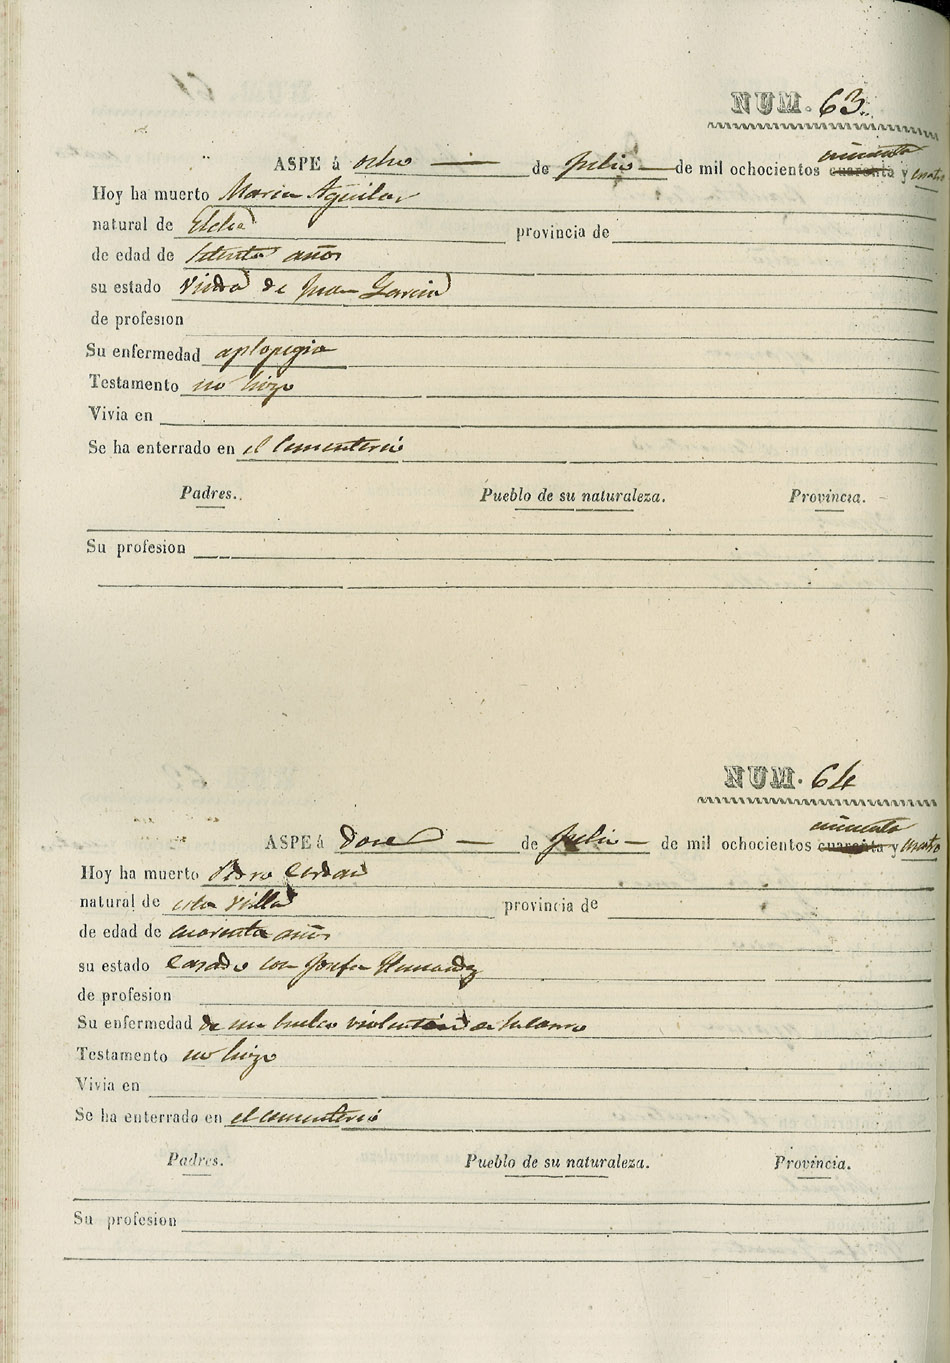 NUM. 63.
ASPE á ocho de Julio de mil ochocientos cincuenta cuarenta y cuatro
Hoy ha muerto Maria Aguilar
natural de Elche provincia de
de edad de setenta años
su estado Viuda de Juan Garcia
de profesion
Su enfermedad aplopegia
Testamento no hizo
Vivia en
Se ha enterrado en el Cementerio
Padres. Pueblo de su naturaleza. Provincia.
Su profesion
NUM. 64
ASPE á doce de Julio de mil ochocientos cincuenta cuarenta y cuatro
Hoy ha muerto Pedro Cerdan
natural de esta Villa provincia de
de edad de cuarenta años
su estado Casado con Josefa Hernandez
de profesion
Su enfermedad de un buelco violento de
Testamento no hizo
Vivia en
Se ha enterrado en el cementerio
Padres. Pueblo de su naturaleza. Provincia.
Su profesion